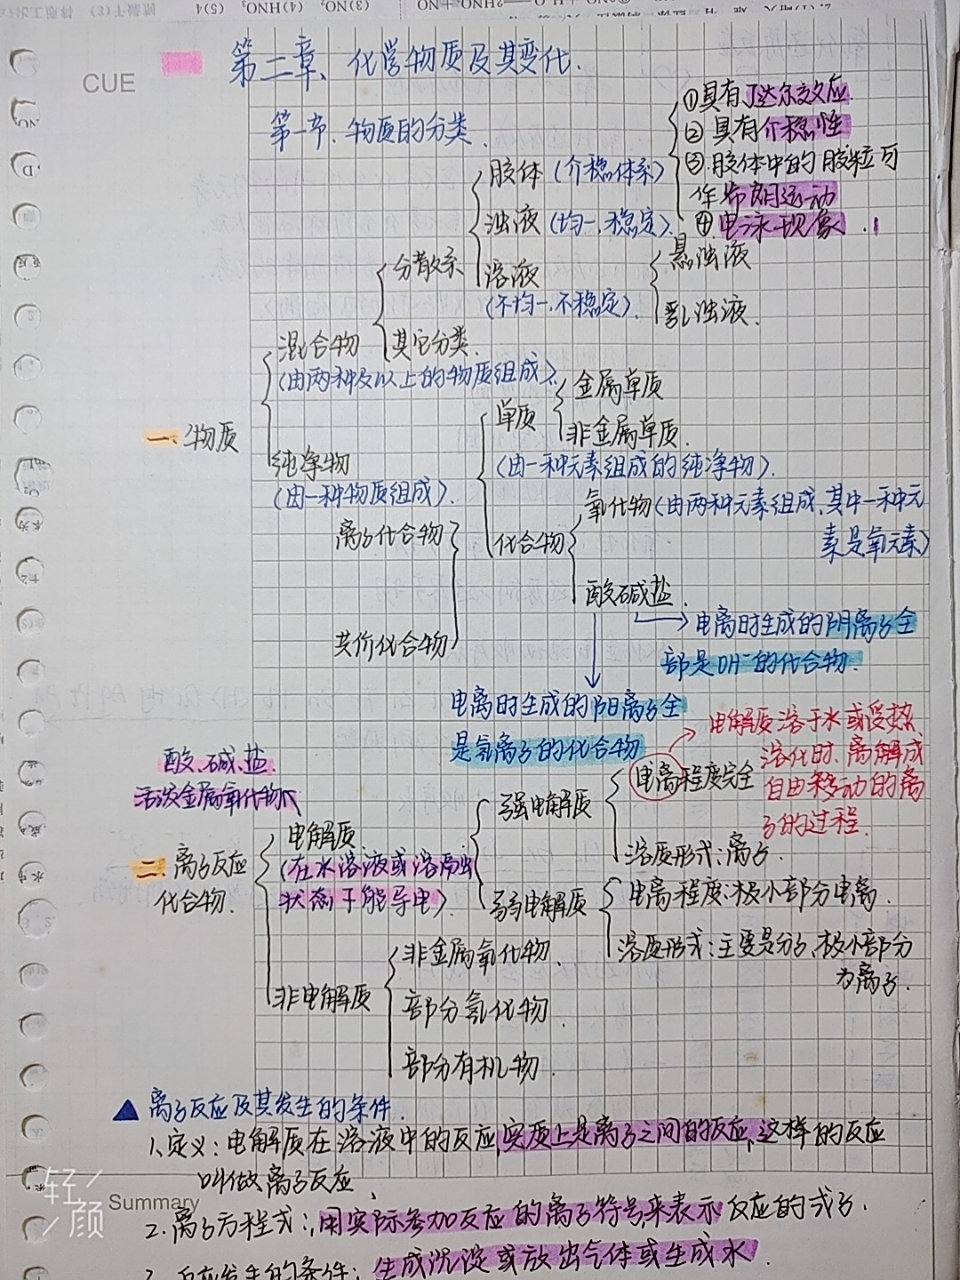 (3)NO₂ (4)HNO₃ (5)4
CUE
第二章、化学物质及其变化.
第一节.物质的分类.
①具有丁达尔效应.
②具有介稳性
③.胶体中的胶粒可
作布朗运动
④电泳现象.
胶体(介稳体系)
浊液(均一.稳定).
溶液
(不均一.不稳定).
悬浊液
乳浊液.
分散系
其它分类.
混合物
(由两种及以上的物质组成).
一、物质
纯净物
(由一种物质组成).
单质
金属单质
非金属单质.
(由一种元素组成的纯净物).
化合物
氧化物(由两种元素组成.其中一种元
素是氧元素)
酸碱盐.
离子化合物
共价化合物
电离时生成的阴离子全
部是OH⁻的化合物.
电离时生成的阳离子全
是氢离子的化合物
电解质溶于水或受热
溶化时.离解成
自由移动的离
子的过程.
酸、碱、盐.
活泼金属氧化物
二、离子反应
化合物.
电解质.
(在水溶液或溶融
状态下能导电).
强电解质
电离程度完全
溶质形式:离子.
弱电解质
电离程度:极小部分电离.
溶质形式:主要是分子,极小部分
为离子.
非电解质
非金属氧化物.
部分氢化物.
部分有机物.
▲ 离子反应及其发生的条件.
1.定义:电解质在溶液中的反应,实质上是离子之间的反应,这样的反应
叫做离子反应.
轻颜
Summary
2.离子方程式:用实际参加反应的离子符号来表示反应的式子.
3.反应发生的条件:生成沉淀或放出气体或生成水